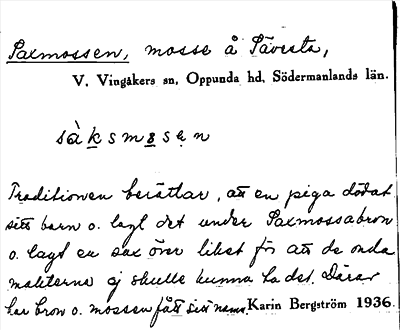 Saxmossen, mosse å Sävesta,
V. Vingåkers sn, Oppunda hd, Södermanlands län.
sàksmosen
Traditionen berättar, att en piga dödat
sitt barn o. lagt det under Saxmossabron
o. lagt en sax över liket för att de onda
makterna ej skulle kunna ta det. Därav
har bron o. mossen fått sitt namn. Karin Bergström 1936.